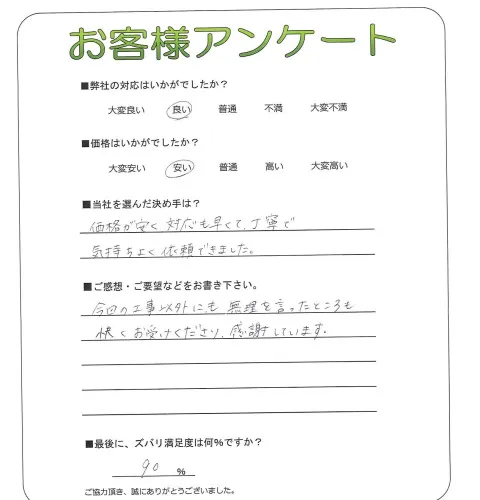 お客様アンケート
■弊社の対応はいかがでしたか？
大変良い 良い 普通 不満 大変不満
■価格はいかがでしたか？
大変安い 安い 普通 高い 大変高い
■当社を選んだ決め手は？
価格が安く対応も早くて、丁寧で
気持ちよく依頼できました。
■ご感想・ご要望などをお書き下さい。
今回の工事以外にも無理を言ったところも
快くお受けくださり、感謝しています。
■最後に、ズバリ満足度は何%ですか？
90 %
ご協力頂き、誠にありがとうございました。